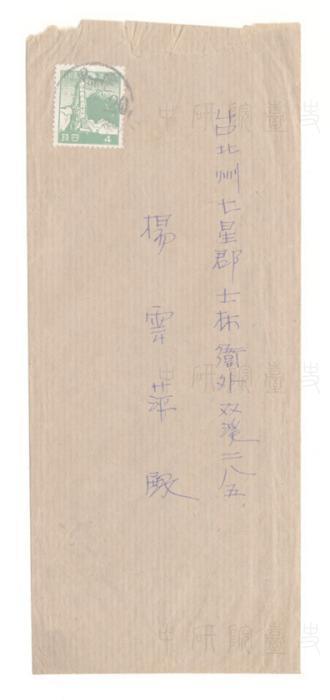 台北州七星郡士林街外双溪二八五
楊雲萍殿
4
中研院臺史
中研院臺史
中研院臺史